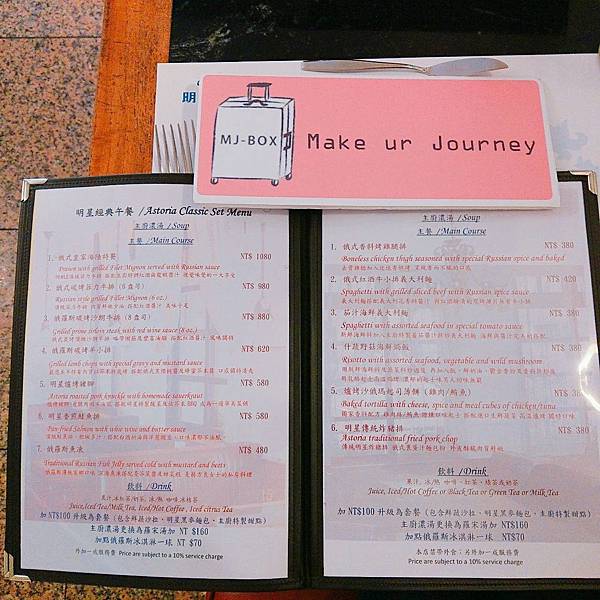 明
MJ-BOX
Make ur Journey
明星經典午餐 / Astoria Classic Set Menu
主廚濃湯 /Soup
主餐 /Main Course
1. 俄式皇家海陸特餐 NT$ 1080
Prawn with grilled Filet Mignon served with Russian sauce
2. 俄式碳烤菲力牛排 (6 盎司) NT$ 980
Russian style grilled Filet Mignon (6 oz.)
3. 俄羅斯碳烤沙朗牛排 (8 盎司) NT$ 880
Grilled prime sirloin steak with red wine sauce (8 oz.)
4. 俄羅斯碳烤羊小排 NT$ 620
Grilled lamb chops with special gravy and mustard sauce
5. 明星爐烤豬腳 NT$ 580
Astoria roasted pork knuckle with homemade sauerkraut
6. 明星香煎鮭魚排 NT$ 580
Pan-fried Salmon with wine wine and butter sauce
7. 俄羅斯魚凍 NT$ 480
Traditional Russian Fish Jelly served cold with mustard and beets
飲料 /Drink
果汁.冰紅茶/奶茶.冰/熱 咖啡.冰桔茶
Juice,Iced Tea/Milk Tea, Iced/Hot Coffee, Iced citrus Tea
加 NT$100 升級為套餐 (包含鮮蔬沙拉、明星黑麥麵包、主廚特製甜點)
主廚濃湯更換為羅宋湯加 NT $160
加點俄羅斯冰淇淋一球 NT $70
外加一成服務費 Price are subject to a 10% service charge
主廚濃湯 /Soup
主餐 /Main Course
1. 俄式香料烤雞腿排 NT$ 380
Boneless chicken thigh seasoned with special Russian spice and baked
2. 俄式紅酒牛小排義大利麵 NT$ 420
Spaghetti with grilled sliced beef with Russian spice sauce
3. 茄汁海鮮義大利麵 NT$ 380
Spaghetti with assorted seafood in special tomato sauce
4. 什蔬野菇海鮮焗飯 NT$ 380
Risotto with assorted seafood, vegetable and wild mushroom
5. 爐烤沙俄瑪起司薄餅 (雞肉/鮪魚) NT$ 380
Baked tortilla with cheese, spice and meal cubes of chicken/tuna
6. 明星傳統炸豬排 NT$ 380
Astoria traditional fried pork chop
飲料 /Drink
果汁、冰/熱 咖啡、紅茶、綠茶或奶茶
Juice, Iced/Hot Coffee or Black Tea or Green Tea or Milk Tea
加 NT$100 升級為套餐 (包含鮮蔬沙拉、明星黑麥麵包、主廚特製甜點)
主廚濃湯更換為羅宋湯加 NT$160
加點俄羅斯冰淇淋一球 NT $70
本店禁帶外食；另外加一成服務費
Price are subject to a 10% service charge